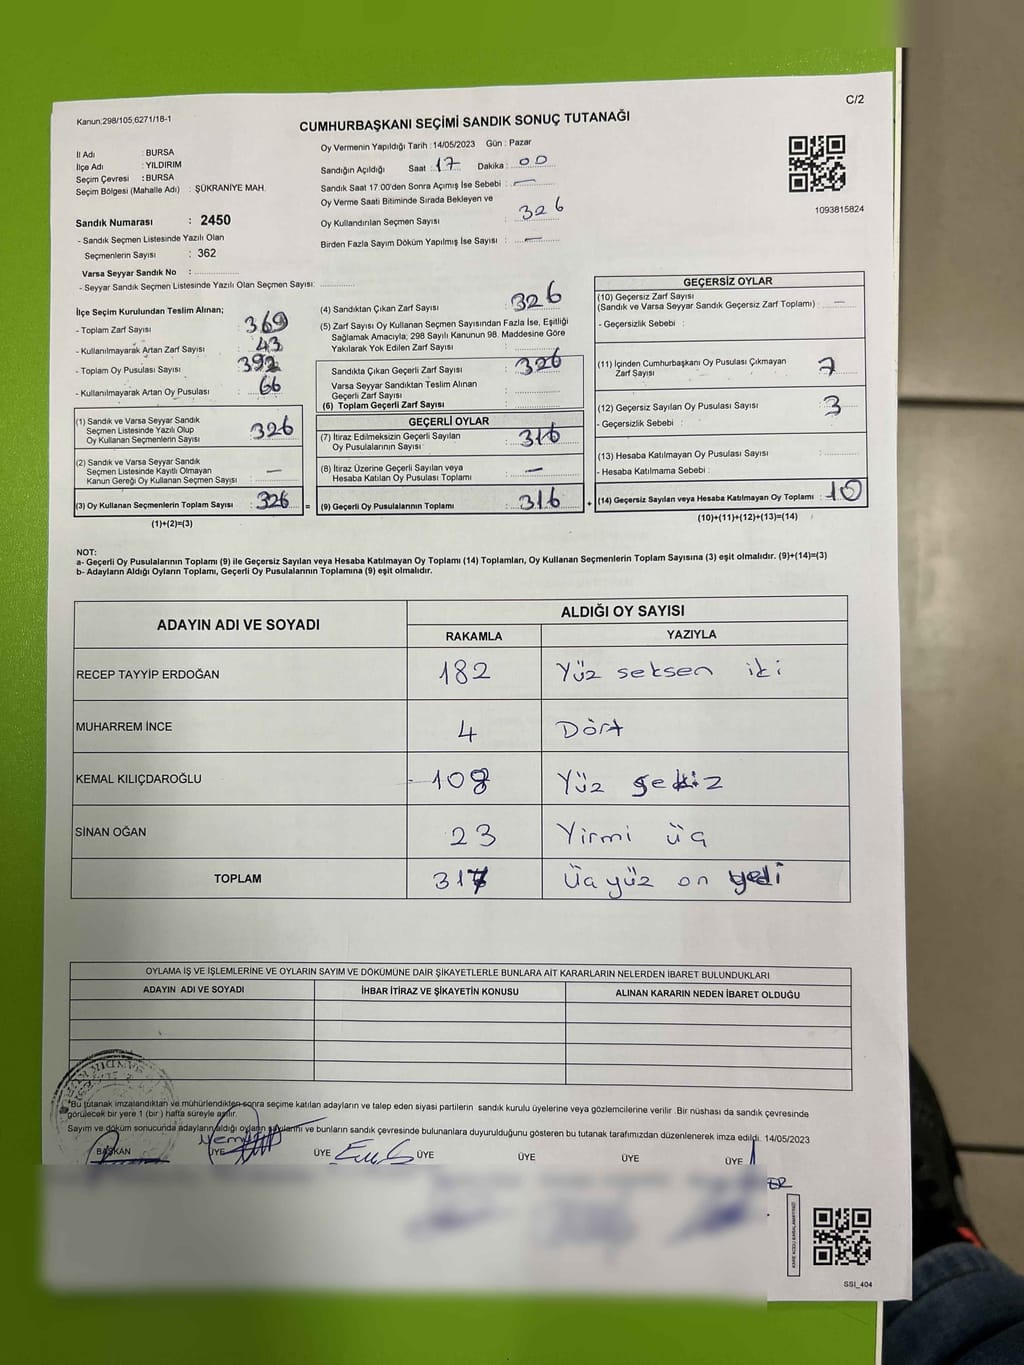 Kanun:298/105,6271/18-1
C/2
CUMHURBAŞKANI SEÇİMİ SANDIK SONUÇ TUTANAĞI
İl Adı : BURSA
İlçe Adı : YILDIRIM
Seçim Çevresi : BURSA
Seçim Bölgesi (Mahalle Adı) : ŞÜKRANİYE MAH.
Sandık Numarası : 2450
- Sandık Seçmen Listesinde Yazılı Olan
Seçmenlerin Sayısı : 362
Varsa Seyyar Sandık No :
- Seyyar Sandık Seçmen Listesinde Yazılı Olan Seçmen Sayısı:
Oy Vermenin Yapıldığı Tarih : 14/05/2023 Gün : Pazar
Sandığın Açıldığı Saat : 17 Dakika : 00
Sandık Saat 17.00'den Sonra Açımış İse Sebebi : —
Oy Verme Saati Bitiminde Sırada Bekleyen ve
Oy Kullandırılan Seçmen Sayısı : 326
Birden Fazla Sayım Döküm Yapılmış İse Sayısı : —
1093815824
İlçe Seçim Kurulundan Teslim Alınan;
- Toplam Zarf Sayısı : 369
- Kullanılmayarak Artan Zarf Sayısı : 43
- Toplam Oy Pusulası Sayısı : 392
- Kullanılmayarak Artan Oy Pusulası : 66
(1) Sandık ve Varsa Seyyar Sandık
Seçmen Listesinde Yazılı Olup
Oy Kullanan Seçmenlerin Sayısı : 326
(2) Sandık ve Varsa Seyyar Sandık
Seçmen Listesinde Kayıtlı Olmayan
Kanun Gereği Oy Kullanan Seçmen Sayısı : —
(3) Oy Kullanan Seçmenlerin Toplam Sayısı : 326
(1)+(2)=(3)
=
(4) Sandıktan Çıkan Zarf Sayısı : 326
(5) Zarf Sayısı Oy Kullanan Seçmen Sayısından Fazla İse, Eşitliği
Sağlamak Amacıyla; 298 Sayılı Kanunun 98. Maddesine Göre
Yakılarak Yok Edilen Zarf Sayısı :
Sandıkta Çıkan Geçerli Zarf Sayısı : 326
Varsa Seyyar Sandıktan Teslim Alınan
Geçerli Zarf Sayısı :
(6) Toplam Geçerli Zarf Sayısı :
GEÇERLİ OYLAR
(7) İtiraz Edilmeksizin Geçerli Sayılan
Oy Pusulalarının Sayısı : 316
(8) İtiraz Üzerine Geçerli Sayılan veya
Hesaba Katılan Oy Pusulası Toplamı : —
(9) Geçerli Oy Pusulalarının Toplamı : 316
+
GEÇERSİZ OYLAR
(10) Geçersiz Zarf Sayısı
(Sandık ve Varsa Seyyar Sandık Geçersiz Zarf Toplamı) : —
- Geçersizlik Sebebi :
(11) İçinden Cumhurbaşkanı Oy Pusulası Çıkmayan
Zarf Sayısı : 7
(12) Geçersiz Sayılan Oy Pusulası Sayısı : 3
- Geçersizlik Sebebi :
(13) Hesaba Katılmayan Oy Pusulası Sayısı :
- Hesaba Katılmama Sebebi :
(14) Geçersiz Sayılan veya Hesaba Katılmayan Oy Toplamı : 10
(10)+(11)+(12)+(13)=(14)
NOT:
a- Geçerli Oy Pusulalarının Toplamı (9) ile Geçersiz Sayılan veya Hesaba Katılmayan Oy Toplamı (14) Toplamları, Oy Kullanan Seçmenlerin Toplam Sayısına (3) eşit olmalıdır. (9)+(14)=(3)
b- Adayların Aldığı Oyların Toplamı, Geçerli Oy Pusulalarının Toplamına (9) eşit olmalıdır.
ADAYIN ADI VE SOYADI
ALDIĞI OY SAYISI
RAKAMLA YAZIYLA
RECEP TAYYİP ERDOĞAN 182 Yüz seksen iki
MUHARREM İNCE 4 Dört
KEMAL KILIÇDAROĞLU 108 Yüz sekiz
SİNAN OĞAN 23 Yirmi üç
TOPLAM 317 Üçyüz on yedi
OYLAMA İŞ VE İŞLEMLERİNE VE OYLARIN SAYIM VE DÖKÜMÜNE DAİR ŞİKAYETLERLE BUNLARA AİT KARARLARIN NELERDEN İBARET BULUNDUKLARI
ADAYIN ADI VE SOYADI İHBAR İTİRAZ VE ŞİKAYETİN KONUSU ALINAN KARARIN NEDEN İBARET OLDUĞU
*Bu tutanak imzalandıktan ve mühürlendikten sonra seçime katılan adayların ve talep eden siyasi partilerin sandık kurulu üyelerine veya gözlemcilerine verilir .Bir nüshası da sandık çevresinde
görülecek bir yere 1 (bir ) hafta süreyle asılır.
Sayım ve döküm sonucunda adayların aldığı oyların sayılarını ve bunların sandık çevresinde bulunanlara duyurulduğunu gösteren bu tutanak tarafımızdan düzenlenerek imza edildi. 14/05/2023
BAŞKAN ÜYE ÜYE ÜYE ÜYE ÜYE ÜYE
SSI_404